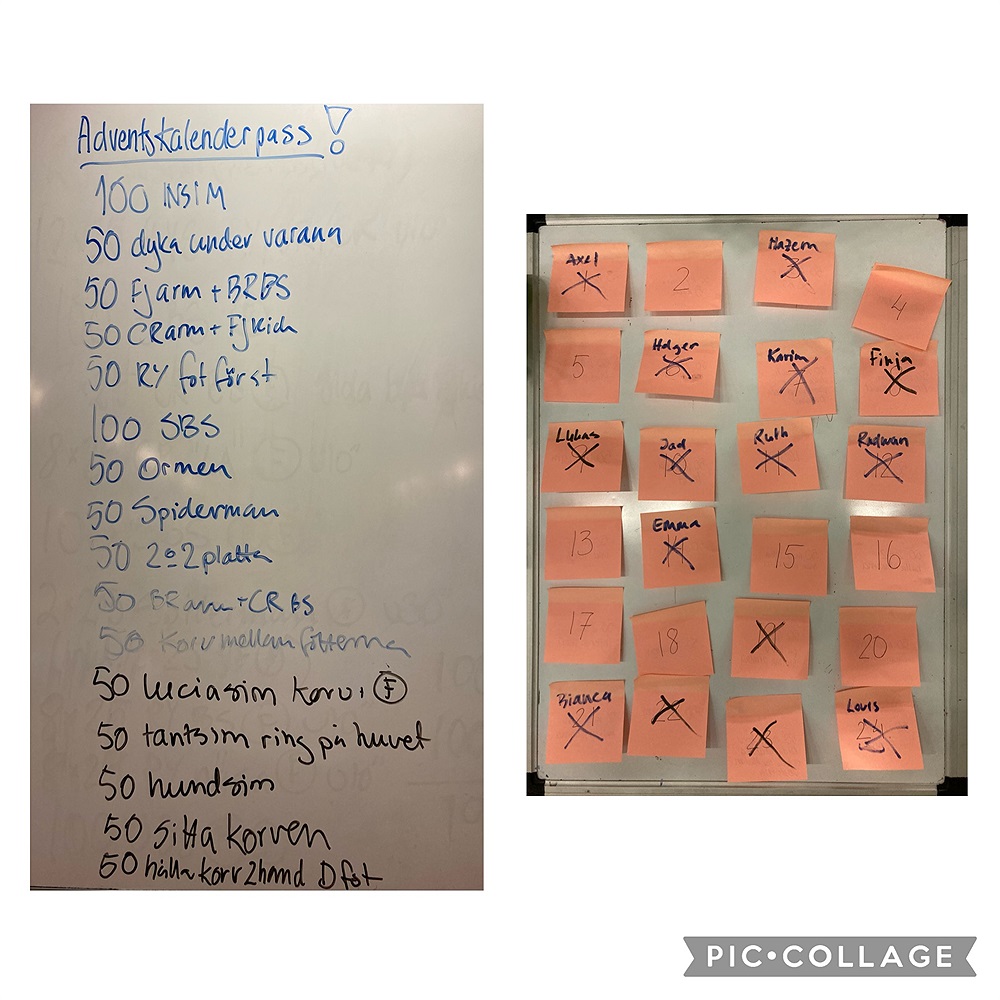 Adventskalenderpass!
100 INSIM
50 dyka under varann
50 Fjarm + BRBS
50 CRarm + FjKick
50 RY fot först
100 SBS
50 Ormen
50 Spiderman
50 2o2 platta
50 BRarm + CRBS
50 Korv mellan fötterna
50 luciasim korv i F
50 tantsim ring på huvet
50 hundsim
50 sitta korven
50 hålla korv 2hand D föt
Axel
2
Mazem
4
5
Holger
Karim
7
Finja
Lukas
9
Jad
10
Ruth
11
Radwan
12
13
Emma
14
15
16
17
18
20
Bianca
21
Louis
24
PIC•COLLAGE